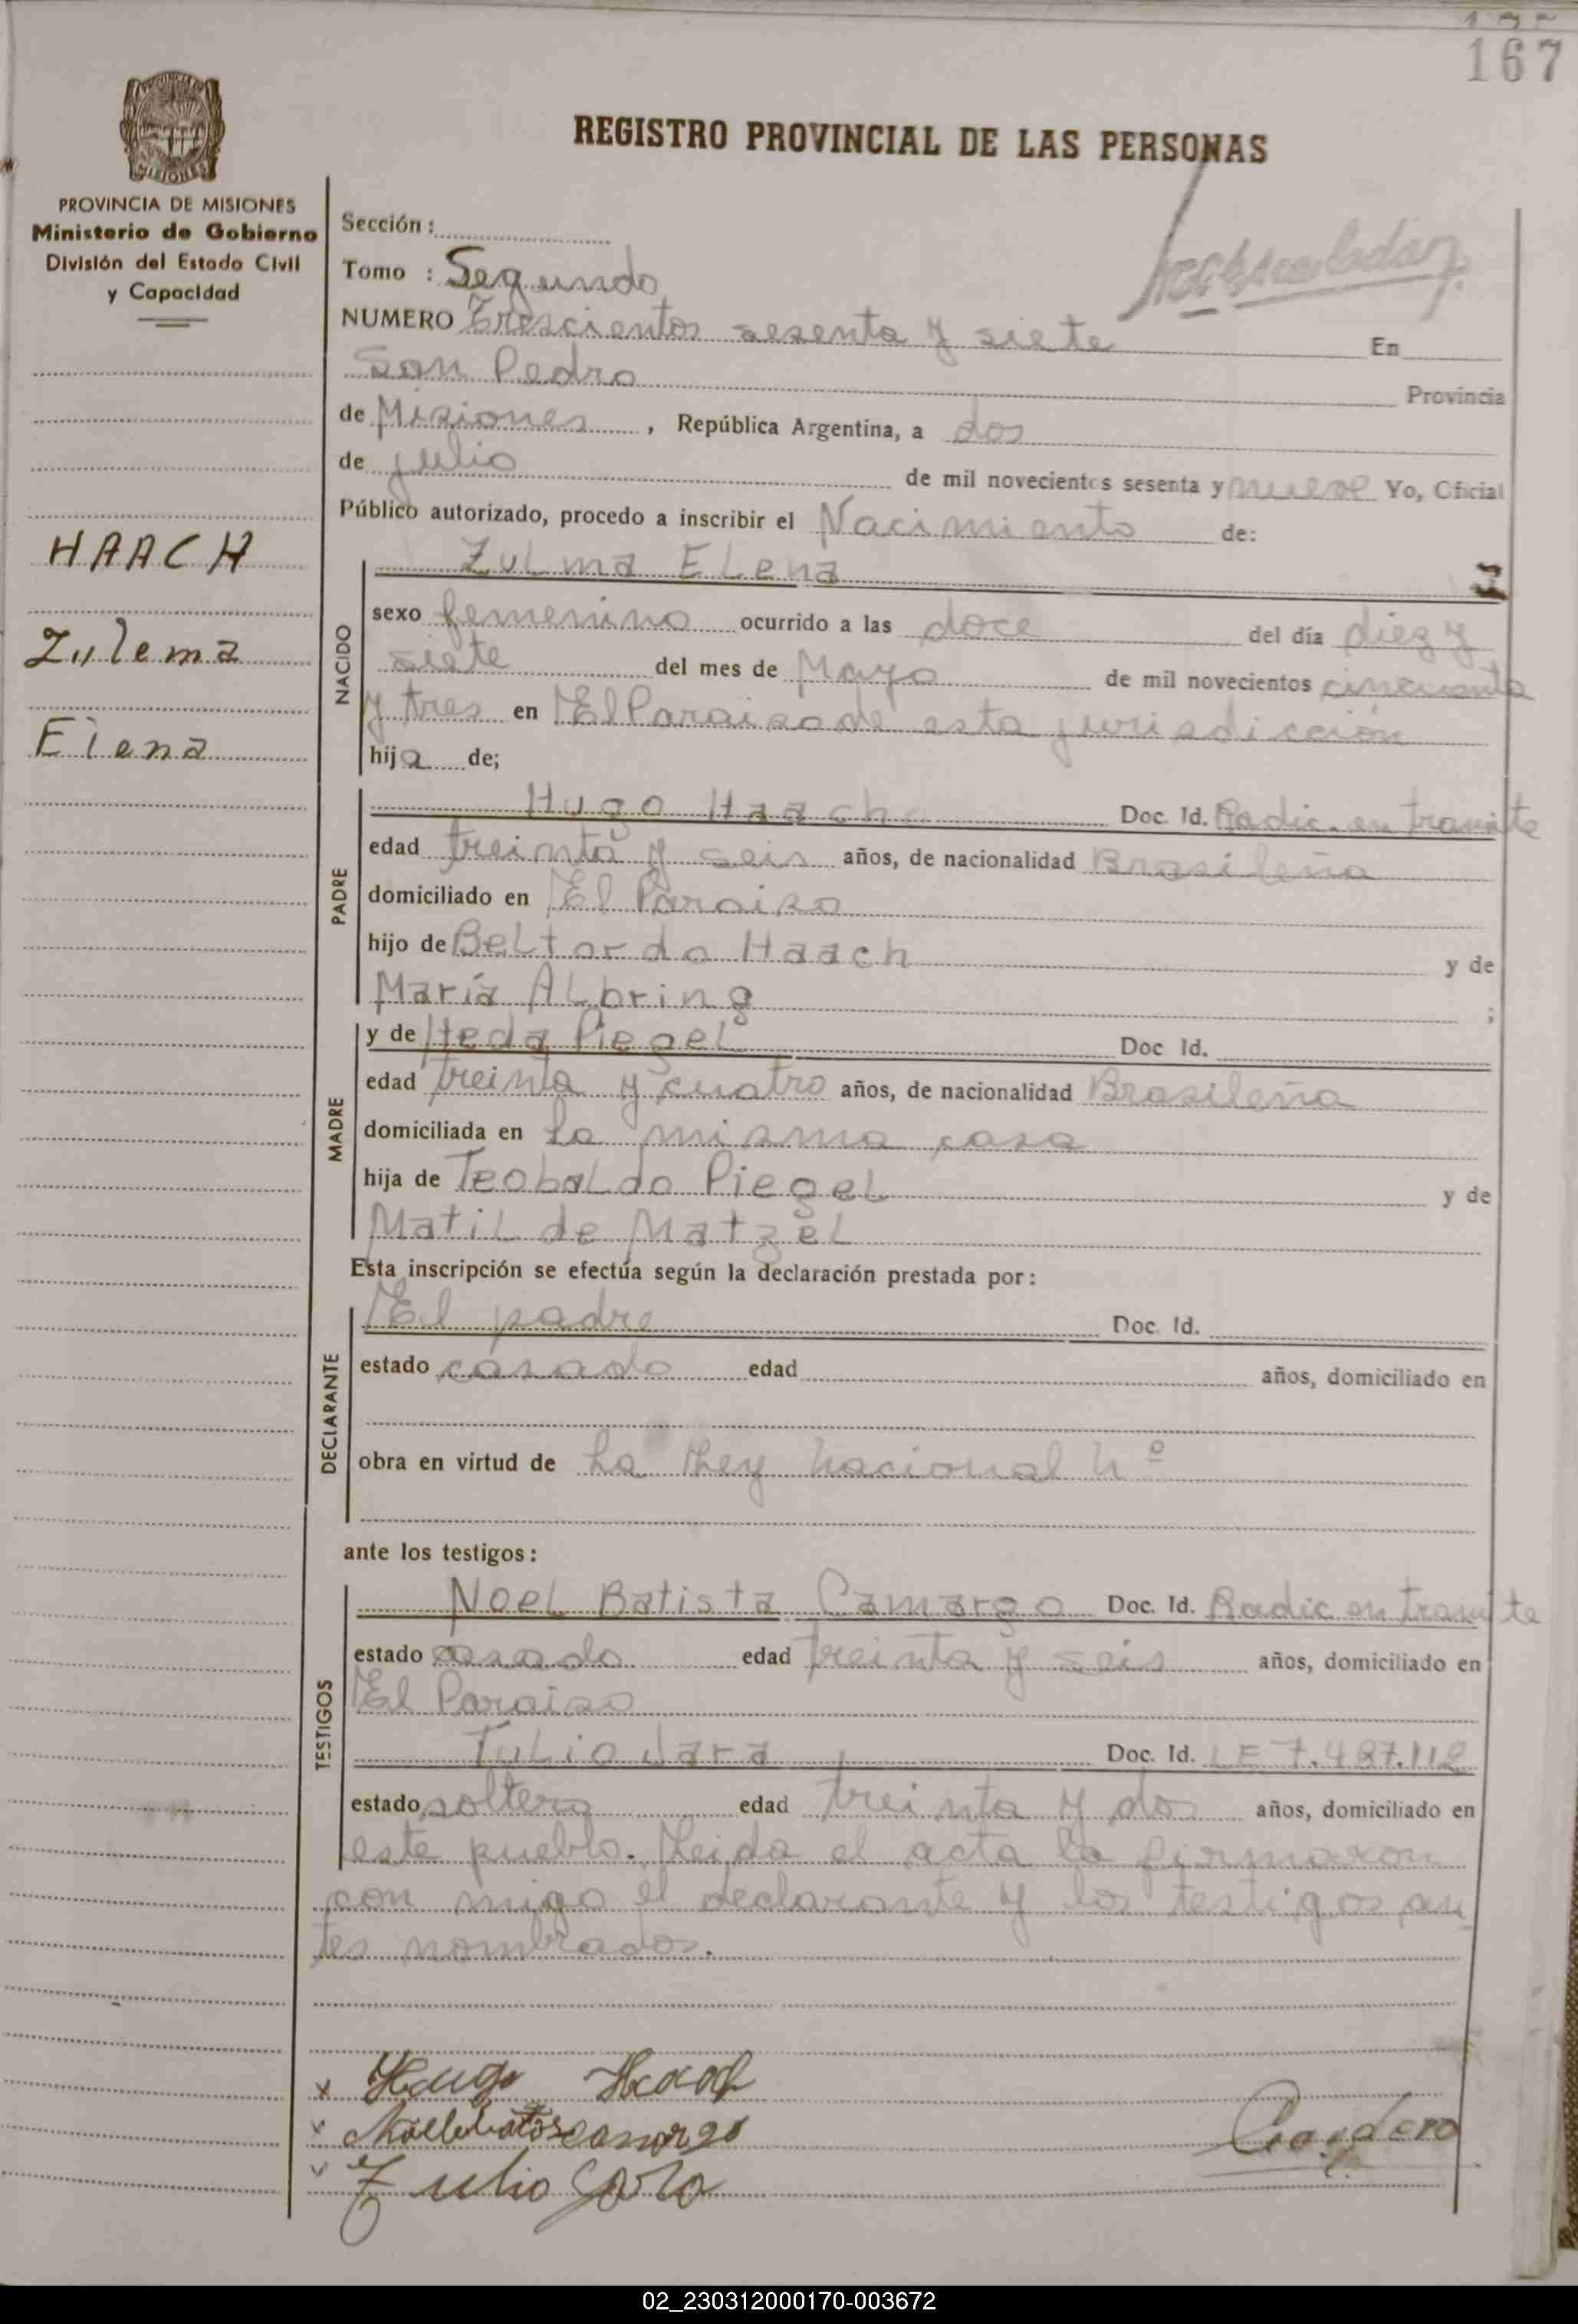 167
REGISTRO PROVINCIAL DE LAS PERSONAS
PROVINCIA DE MISIONES
MISIONES
PROVINCIA DE MISIONES
Ministerio de Gobierno
División del Estado Civil
y Capacidad
HAACH
Zulema
Elena
Sección :
Tomo : Segundo
NUMERO Trescientos sesenta y siete En
San Pedro Provincia
de Misiones , República Argentina, a dos
de julio de mil novecientos sesenta y nueve Yo, Oficial
Público autorizado, procedo a inscribir el Nacimiento de:
NACIDO
Zulma Elena
sexo femenino ocurrido a las doce del día diez y
siete del mes de Mayo de mil novecientos cincuenta
y tres en El Paraiso de esta jurisdicción
hija de;
PADRE
Hugo Haach Doc. Id. Radic. en tramite
edad treinta y seis años, de nacionalidad Brasileña
domiciliado en El Paraiso
hijo de Beltordo Haach y de
María Albring ;
MADRE
y de Heda Piegel Doc Id.
edad treinta y cuatro años, de nacionalidad Brasileña
domiciliada en la misma casa
hija de Teobaldo Piegel y de
Matilde Matzel
Esta inscripción se efectúa según la declaración prestada por :
DECLARANTE
El padre Doc. Id.
estado casado edad años, domiciliado en
obra en virtud de La Ley Nacional Nº
ante los testigos :
TESTIGOS
Noel Batista Camargo Doc. Id. Radic en tramite
estado casado edad treinta y seis años, domiciliado en
El Paraiso
Tulio Jara Doc. Id. LE 7.487.112
estado soltero edad treinta y dos años, domiciliado en
este pueblo. Leida el acta la firmaron
con migo el declarante y los testigos an
tes nombrados.
x Hugo Haach
Tulio Jara
02_230312000170-003672